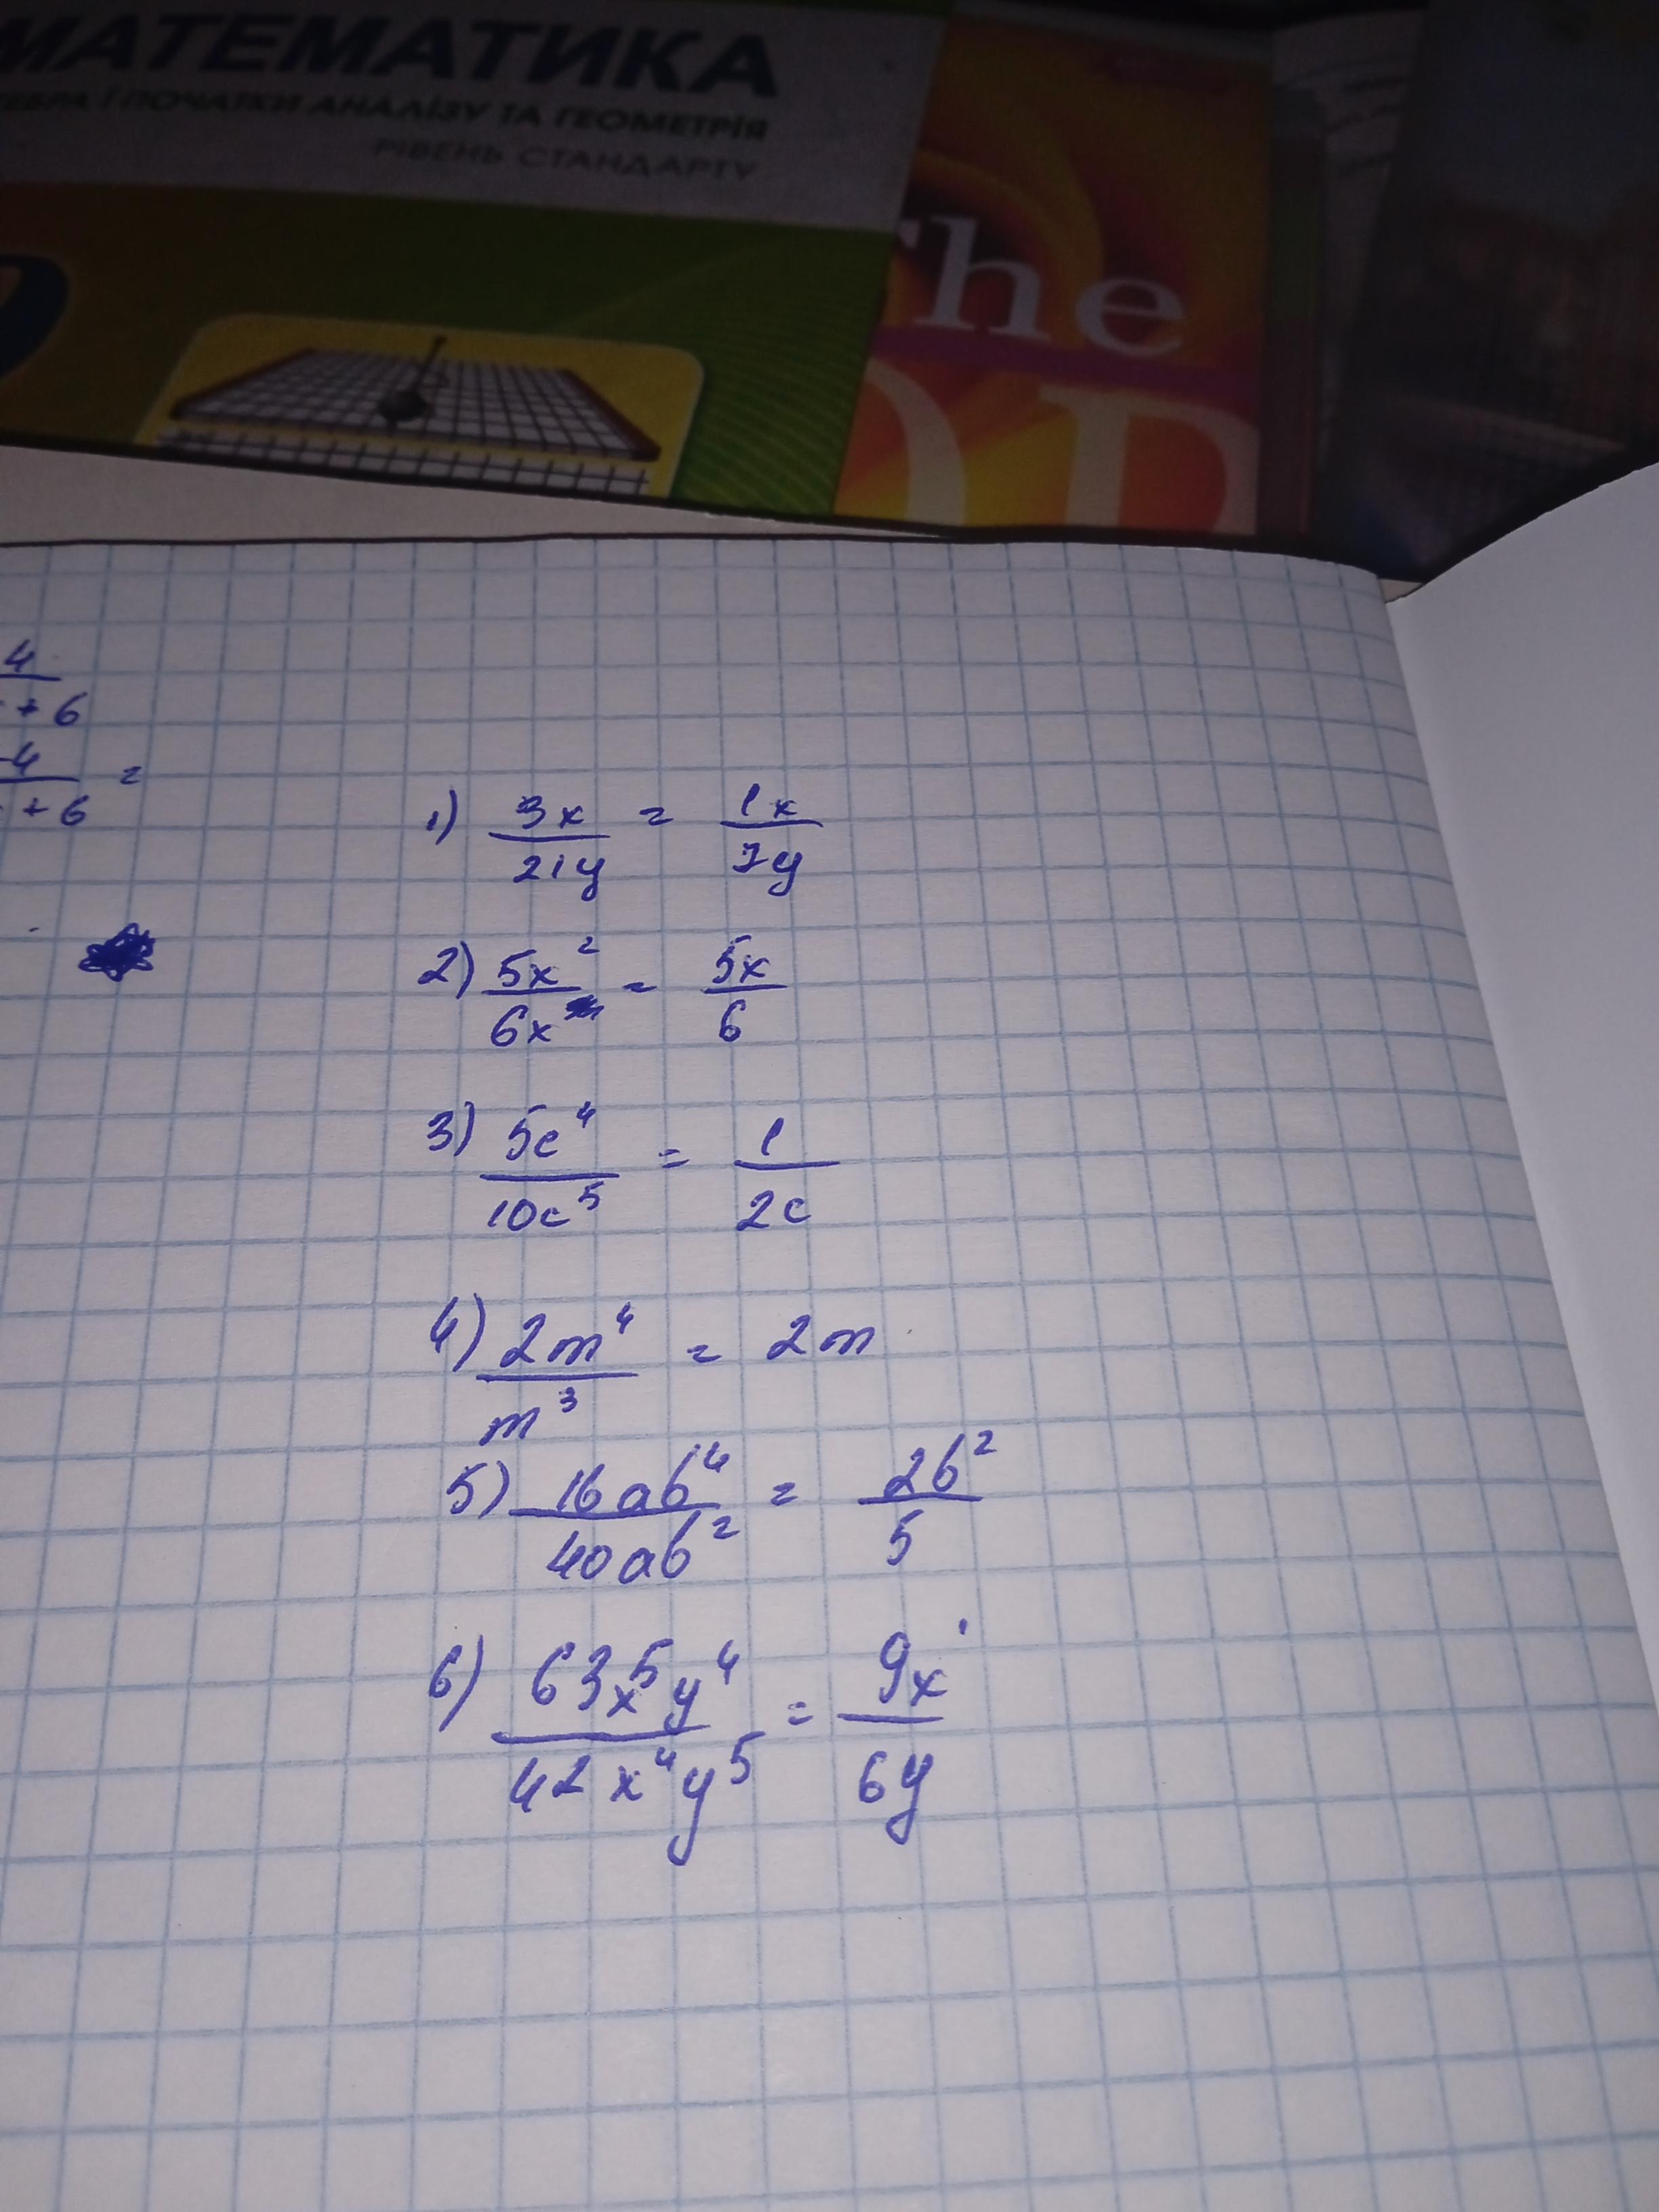 МАТЕМАТИКА
ЕБРА І ПОЧАТКИ АНАЛІЗУ ТА ГЕОМЕТРІЯ
РІВЕНЬ СТАНДАРТУ
The
4
+ 6
-4
+ 6 =
1) 3x/21y = 1x/7y
2) 5x²/6x = 5x/6
3) 5c⁴/10c⁵ = 1/2c
4) 2m⁴/m³ = 2m
5) 16ab⁴/40ab² = 2b²/5
6) 63x⁵y⁴/42x⁴y⁵ = 9x/6y